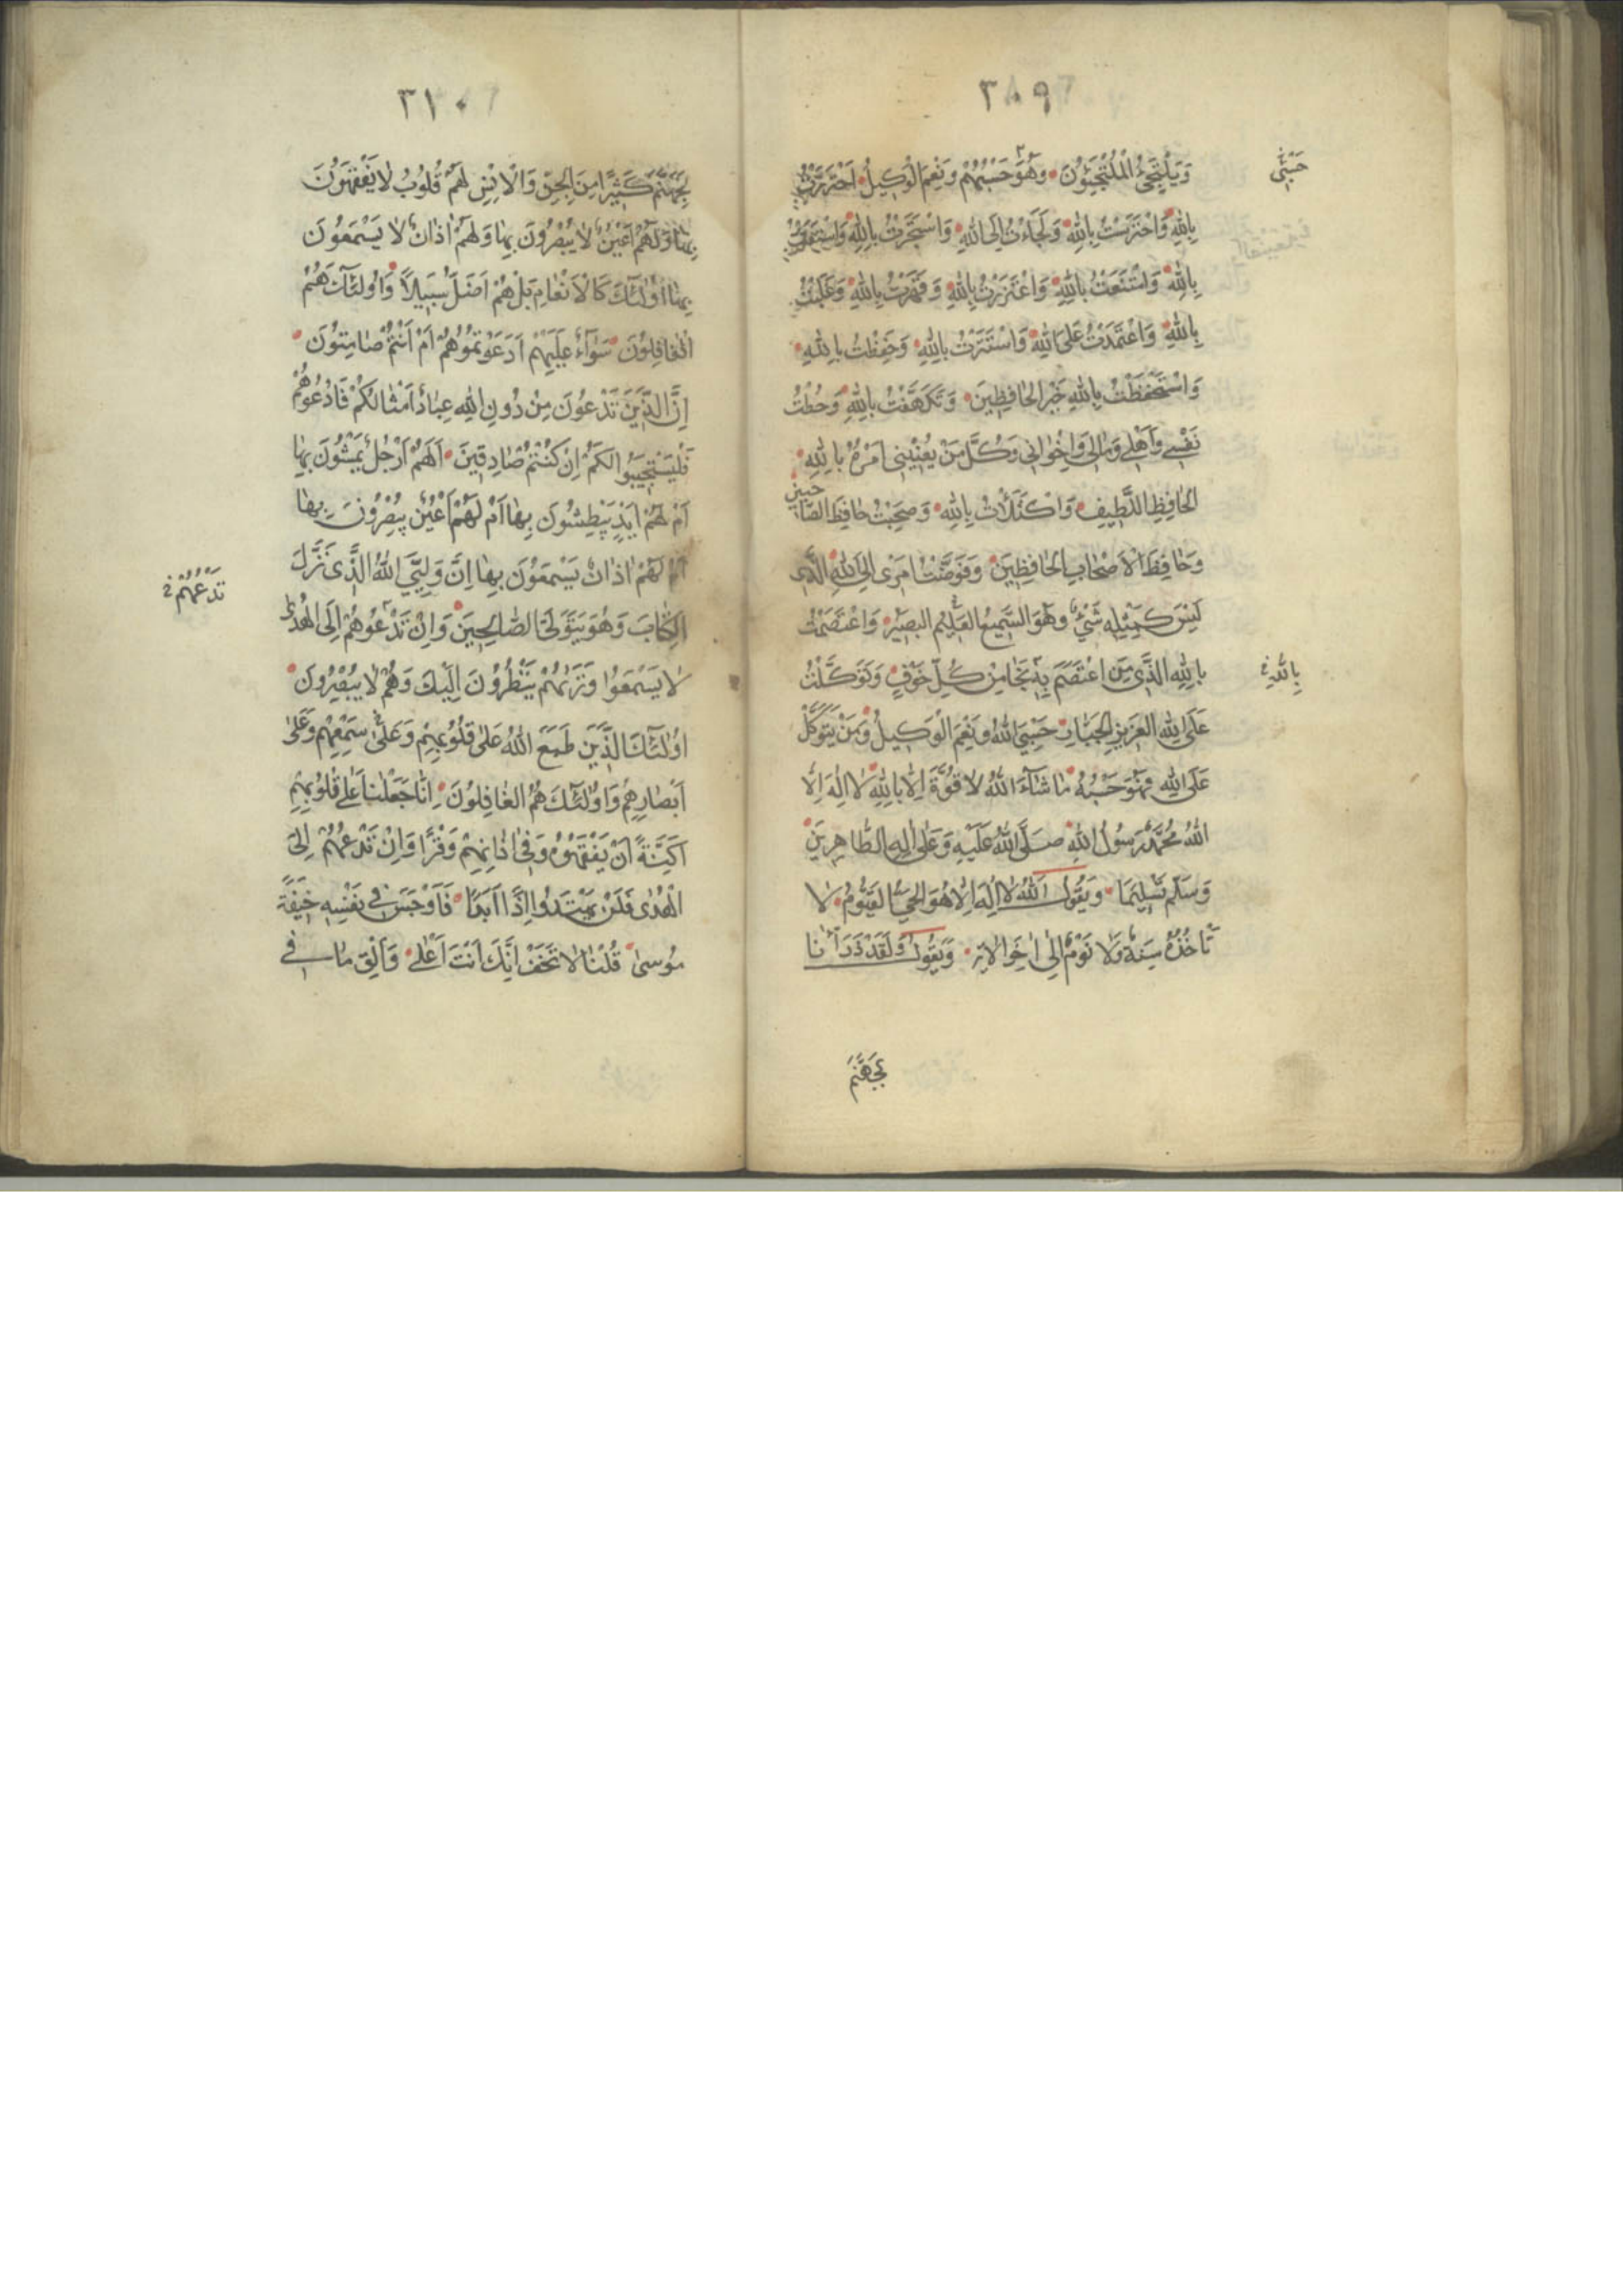 ٣٠٩
وَيَلْتَجِئُ الْمُلْتَجِئُونَ وَهُوَ حَسْبُهُمْ وَنِعْمَ الْوَكِيلُ اَحْتَرَزْتُ
حَسْبِي
بِاللهِ وَاحْتَرَسْتُ بِاللهِ وَلَجَاْءتُ اِلَى اللهِ وَاسْتَجَرْتُ بِاللهِ وَاسْتَعَنْتُ
بِاللهِ وَامْتَنَعْتُ بِاللهِ وَاعْتَزَزْتُ بِاللهِ وَقَهَرْتُ بِاللهِ وَغَلَبْتُ
بِاللهِ وَاعْتَمَدْتُ عَلَى اللهِ وَاسْتَتَرْتُ بِاللهِ وَحَفِظْتُ بِاللهِ
وَاسْتَحْفَظْتُ بِاللهِ خَيْرِ الْحَافِظِينَ وَتَكَهَّفْتُ بِاللهِ وَحُطْتُ
نَفْسِي وَاَهْلِي وَمَالِي وَاِخْوَانِي وَكُلَّ مَنْ يُعْنِينِي اَمْرُهُ بِاللهِ
الْحَافِظِ اللَّطِيفِ وَاكْتَلَأْتُ بِاللهِ وَصَحِبْتُ حَافِظَ الصَّاحِبِينَ
وَحَافِظَ الْاَصْحَابِ الْحَافِظِينَ وَفَوَّضْتُ اَمْرِي اِلَى اللهِ الَّذِي
لَيْسَ كَمِثْلِهِ شَيْءٌ وَهُوَ السَّمِيعُ الْعَلِيمُ الْبَصِيرُ وَاعْتَصَمْتُ
بِاللهِ الَّذِي مَنِ اعْتَصَمَ بِهِ نَجَا مِنْ كُلِّ خَوْفٍ وَتَوَكَّلْتُ
بِاللهِ
عَلَى اللهِ الْعَزِيزِ الْجَبَّارِ حَسْبِيَ اللهُ وَنِعْمَ الْوَكِيلُ وَمَنْ يَتَوَكَّلْ
عَلَى اللهِ فَهُوَ حَسْبُهُ مَا شَاءَ اللهُ لَا قُوَّةَ اِلَّا بِاللهِ لَا اِلٰهَ اِلَّا
اللهُ مُحَمَّدٌ رَسُولُ اللهِ صَلَّى اللهُ عَلَيْهِ وَعَلٰى اٰلِهِ الطَّاهِرِينَ
وَسَلَّمَ تَسْلِيمًا وَيَقُولُ اَللهُ لَا اِلٰهَ اِلَّا هُوَ الْحَيُّ الْقَيُّومُ لَا
تَاْخُذُهُ سِنَةٌ وَلَا نَوْمٌ اِلٰى اٰخِرِ الْاٰيَةِ وَيَقُولُ وَلَقَدْ ذَرَاْنَا
لِجَهَنَّمَ
٣١٠
لِجَهَنَّمَ كَثِيرًا مِنَ الْجِنِّ وَالْاِنْسِ لَهُمْ قُلُوبٌ لَا يَفْقَهُونَ
بِهَا وَلَهُمْ اَعْيُنٌ لَا يُبْصِرُونَ بِهَا وَلَهُمْ اٰذَانٌ لَا يَسْمَعُونَ
بِهَا اُولٰئِكَ كَالْاَنْعَامِ بَلْ هُمْ اَضَلُّ سَبِيلًا وَاُولٰئِكَ هُمُ
الْغَافِلُونَ سَوَاءٌ عَلَيْهِمْ اَدَعَوْتُمُوهُمْ اَمْ اَنْتُمْ صَامِتُونَ
اِنَّ الَّذِينَ تَدْعُونَ مِنْ دُونِ اللهِ عِبَادٌ اَمْثَالُكُمْ فَادْعُوهُمْ
فَلْيَسْتَجِيبُوا لَكُمْ اِنْ كُنْتُمْ صَادِقِينَ اَلَهُمْ اَرْجُلٌ يَمْشُونَ بِهَا
اَمْ لَهُمْ اَيْدٍ يَبْطِشُونَ بِهَا اَمْ لَهُمْ اَعْيُنٌ يُبْصِرُونَ بِهَا
اَمْ لَهُمْ اٰذَانٌ يَسْمَعُونَ بِهَا اِنَّ وَلِيِّيَ اللهُ الَّذِي نَزَّلَ
الْكِتَابَ وَهُوَ يَتَوَلَّى الصَّالِحِينَ وَاِنْ تَدْعُوهُمْ اِلَى الْهُدٰى
تَدْعُهُمْ
لَا يَسْمَعُوا وَتَرٰيهُمْ يَنْظُرُونَ اِلَيْكَ وَهُمْ لَا يُبْصِرُونَ
اُولٰئِكَ الَّذِينَ طَبَعَ اللهُ عَلٰى قُلُوبِهِمْ وَعَلٰى سَمْعِهِمْ وَعَلٰى
اَبْصَارِهِمْ وَاُولٰئِكَ هُمُ الْغَافِلُونَ اِنَّا جَعَلْنَا عَلٰى قُلُوبِهِمْ
اَكِنَّةً اَنْ يَفْقَهُوهُ وَفِي اٰذَانِهِمْ وَقْرًا وَاِنْ تَدْعُهُمْ اِلَى
الْهُدٰى فَلَنْ يَهْتَدُوا اِذًا اَبَدًا فَاَوْجَسَ فِي نَفْسِهِ خِيفَةً
مُوسٰى قُلْنَا لَا تَخَفْ اِنَّكَ اَنْتَ اَعْلٰى وَاَلْقِ مَا فِي